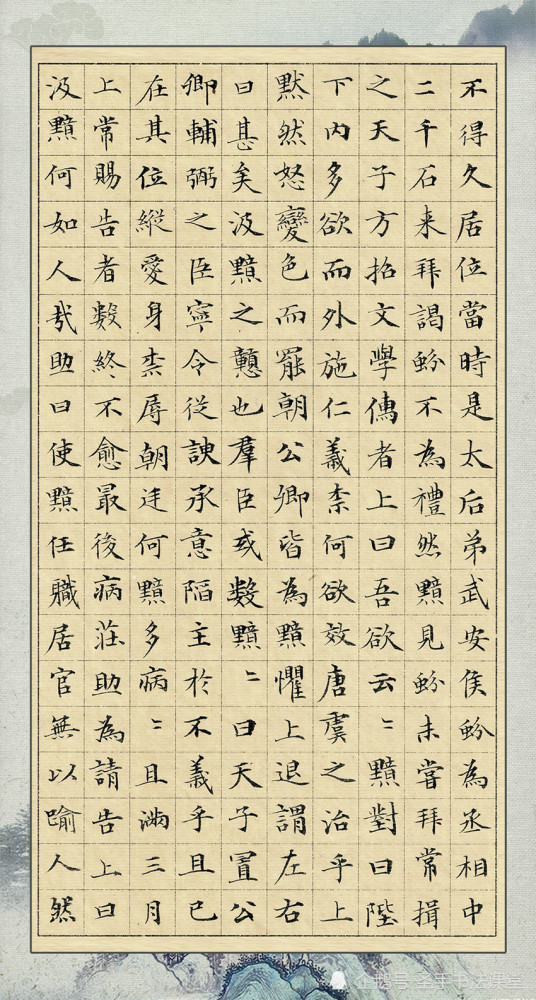 不得久居位當時是太后弟武安侯蚡為丞相中
二千石来拜謁蚡不為禮然黯見蚡未嘗拜常揖
之天子方招文學儒者上曰吾欲云〻黯對曰陛
下内多欲而外施仁義柰何欲效唐虞之治乎上
黙然怒變色而罷朝公卿皆為黯懼上退謂左右
曰甚矣汲黯之戇也羣臣或數黯〻曰天子置公
卿輔弼之臣寧令從諛承意陷主於不義乎且已
在其位縱愛身柰辱朝廷何黯多病〻且满三月
上常賜告者數終不愈最後病莊助為請告上曰
汲黯何如人㦲助曰使黯任職居官無以踰人然